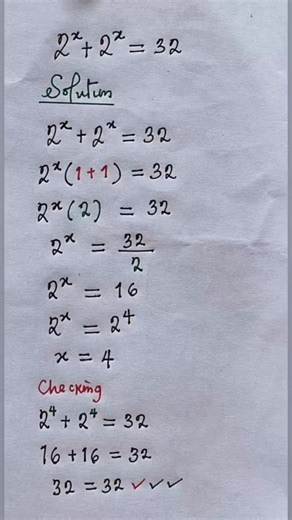 2ˣ + 2ˣ = 32
Solution
2ˣ + 2ˣ = 32
2ˣ (1 + 1) = 32
2ˣ (2) = 32
2ˣ = 32/2
2ˣ = 16
2ˣ = 2⁴
x = 4
Checking
2⁴ + 2⁴ = 32
16 + 16 = 32
32 = 32 ✓✓✓